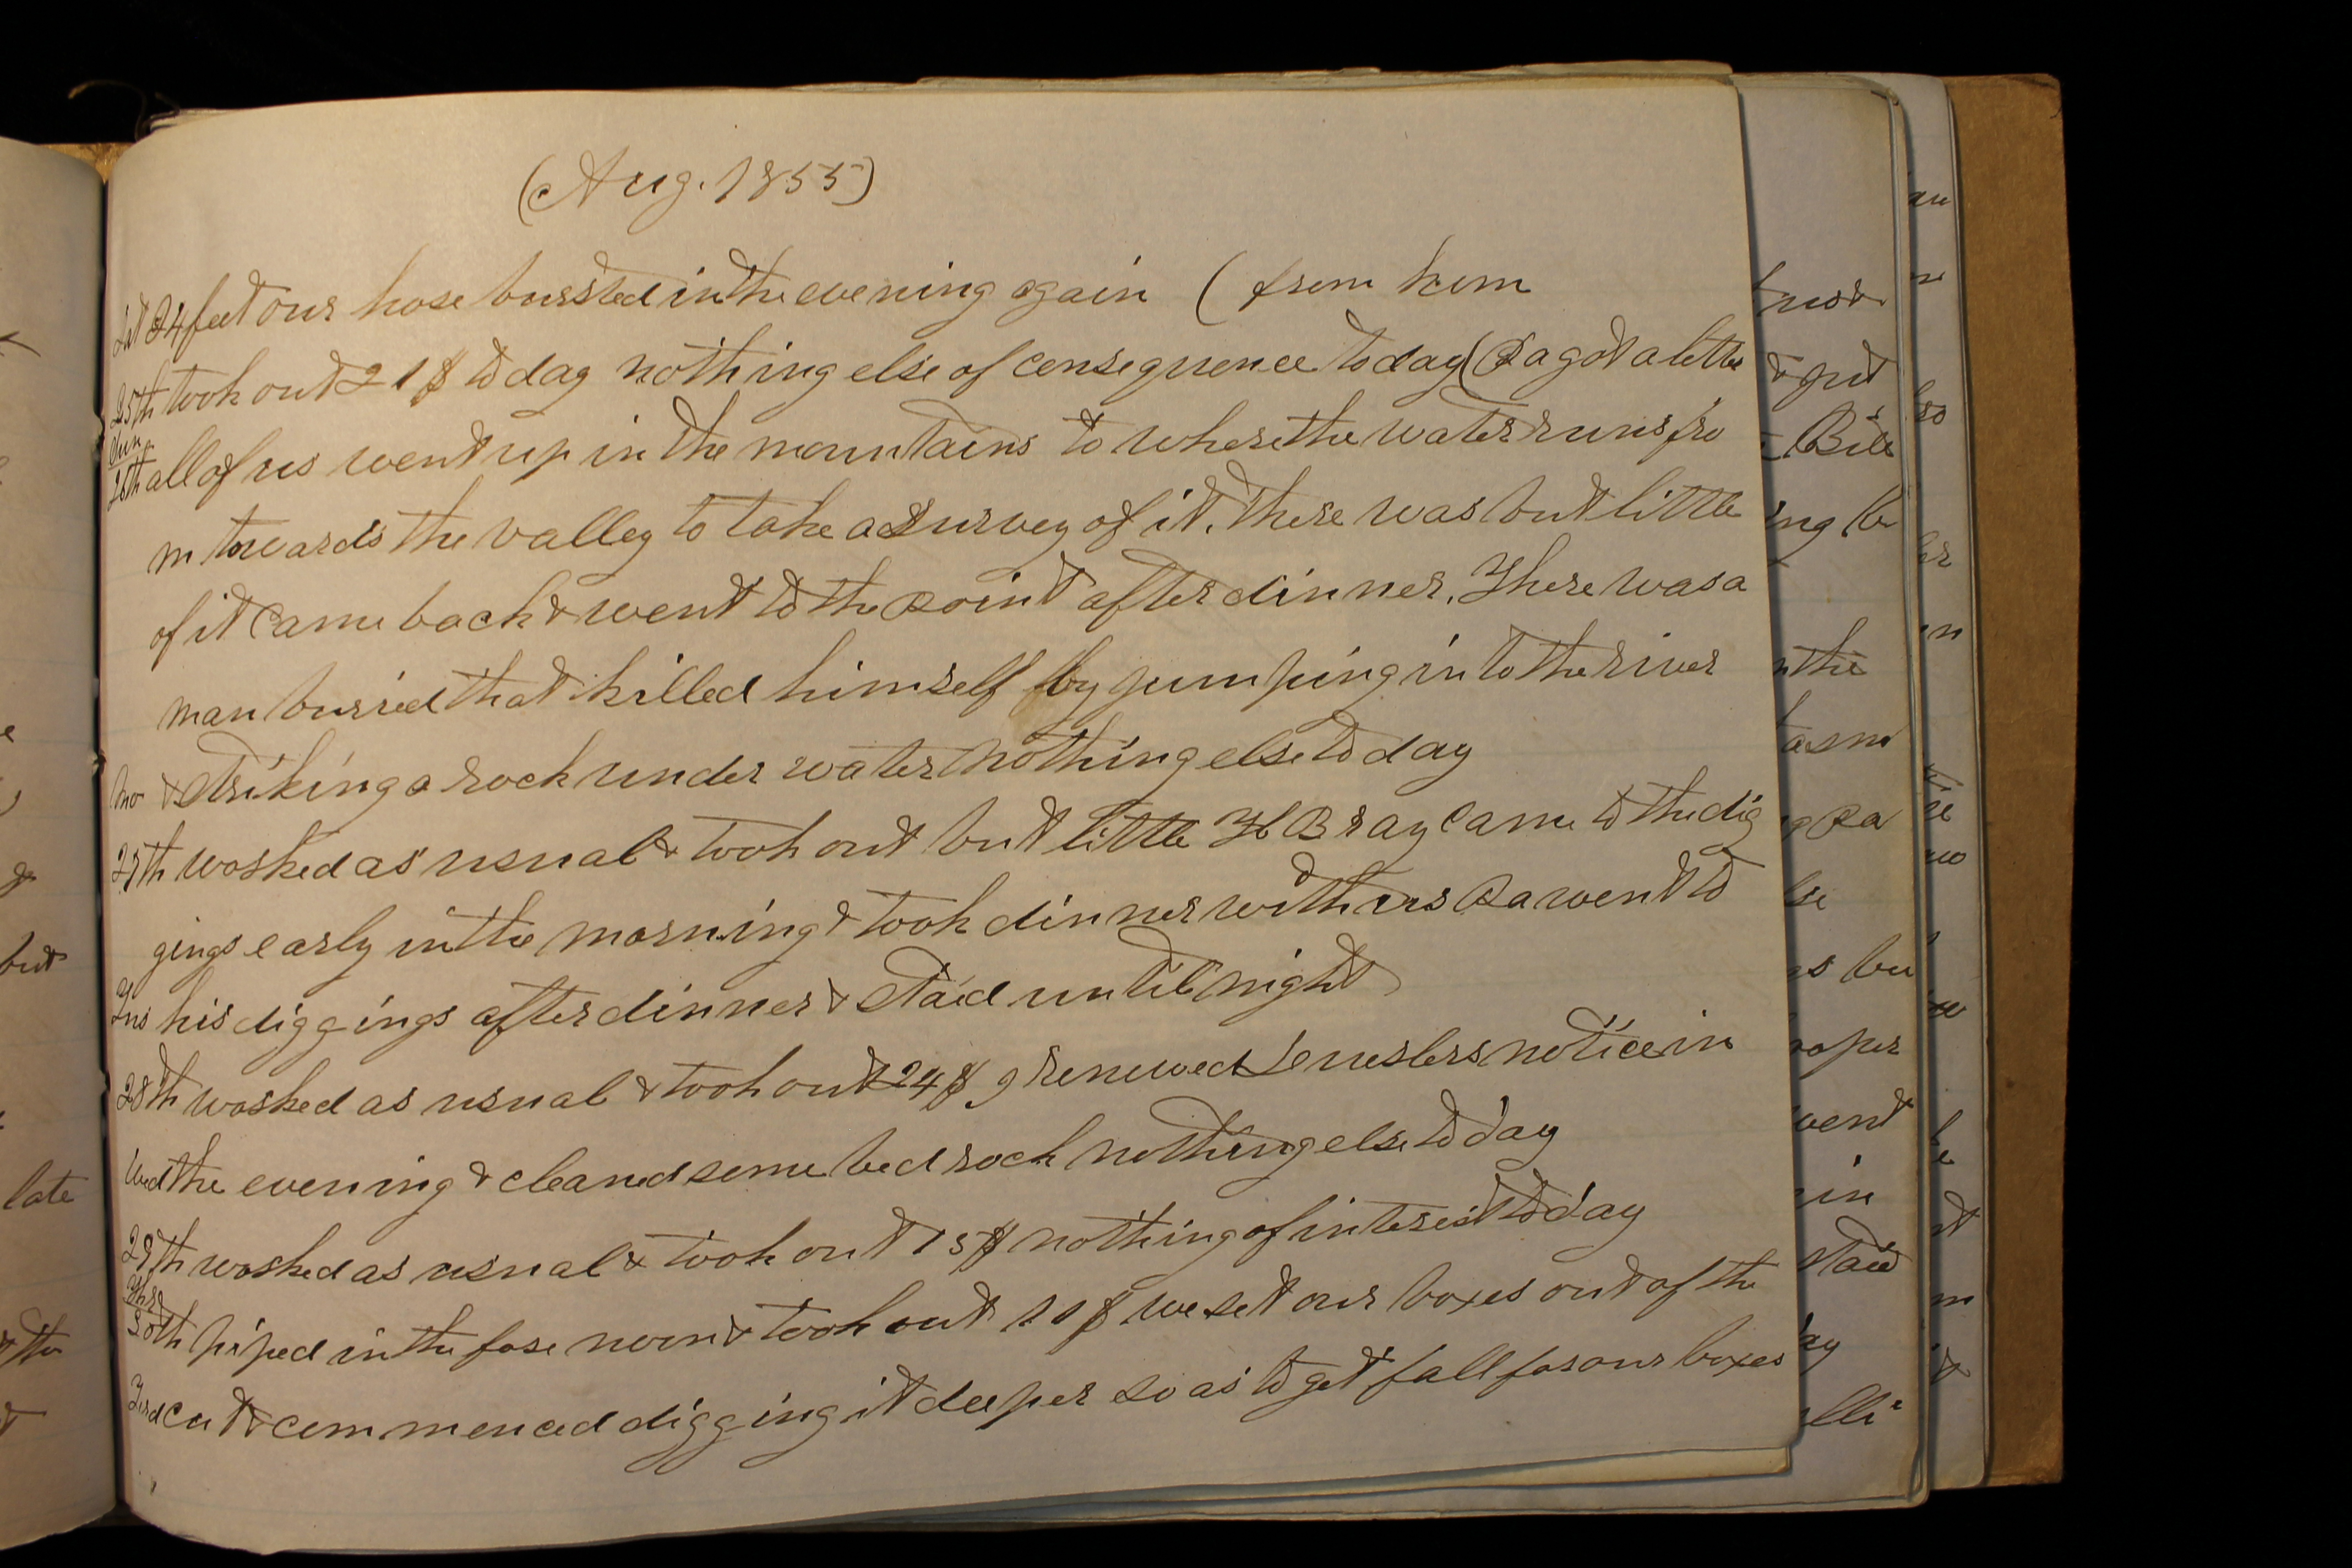 (Aug. 1855)
Sat 24 feet our hose bursted in the evening again ( from hom
25th took out 21 $ to day nothing else of consequence to day (Pa got a letter
Sun
26th all of us went up in the mountains to where the water runs fro
m towards the valley to take a survey of it. There was but little
of it came back & went to the Point after dinner. There was a
man burried that killed himself by jumping into the river
Mo & striking a rock under water nothing else to day
27th washed as usual & took out but little H Bray came to the dig
gings early in the morning & took dinner with us Pa went to
Tus his diggings after dinner & staid until night
28th washed as usual & took out 24 $ I renewed notice in
Wed the evening & cleaned some bed rock nothing else to day
29th washed as usual & took out 15 $ nothing of interest to day
Thr
30th piped in the fore noon & took out 11 $ we set our boxes out of the
cut & commenced digging it deeper so as to get fall for our boxes
but
late
& the
& put
Bill
ing
n the
Pa
s bu
went
in
staid
ay